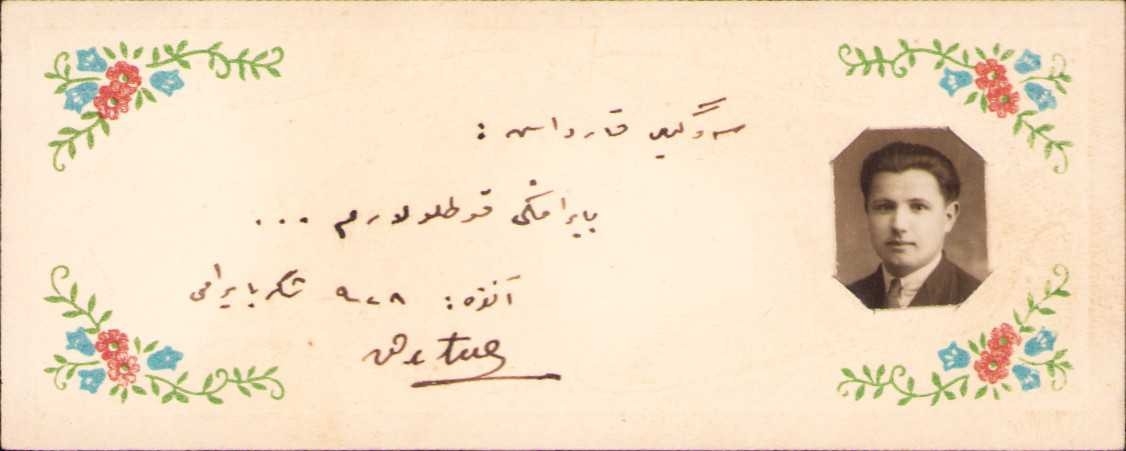 سوگیلی قارداش :
بایرامکی قوطلولارم ...
آنقره : ٩٢٨ شکر بایرامی